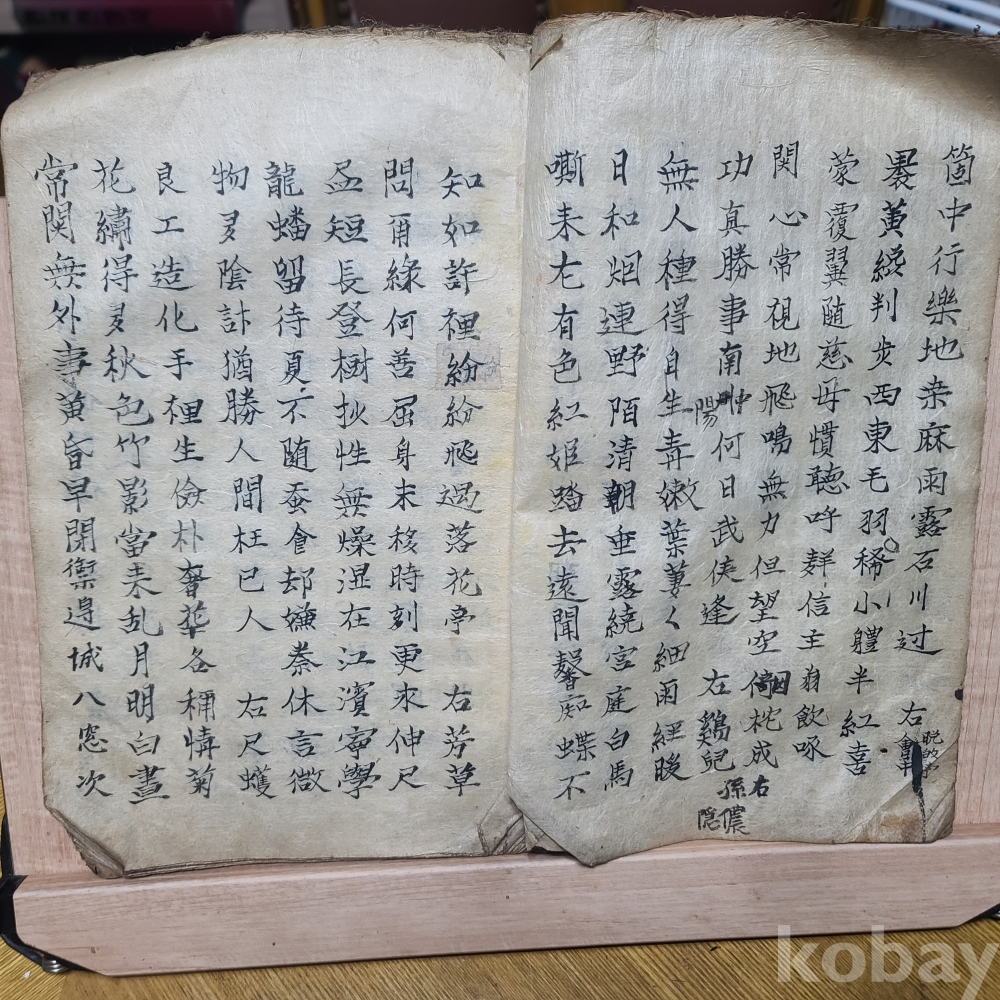 箇中行樂地桒麻雨露石川过 右
褁黃綾判步西東毛羽稀小軆半紅喜
蒙覆翼随慈母慣聽呼群信主翁飲啄
関心常視地飛鳴無力但望空
功真勝事南陽何日武侯逢 右鷄兒
無人種得自生靑嫩葉萋々細雨經晩
日和烟連野陌清朝垂露繞宮庭白馬
嘶来尢有色紅姬踏去遠聞馨痴蝶不
知如許裡紛紛飛過落花亭 右芳草
問甬緣何善屈身未移時刻更求伸尺
盃短長登樹扙性無燥湿在江濱寧學
龍蟠留待夏不随蚕食却嫌秦休言微
物多陰計猶勝人間枉己人 右尺蠖
良工造化手裡生儉朴奢華各稱情菊
花繡得多秋色竹影當来乱月明白晝
常関無外事黃昏早閉禦邊城八窓次
kobay